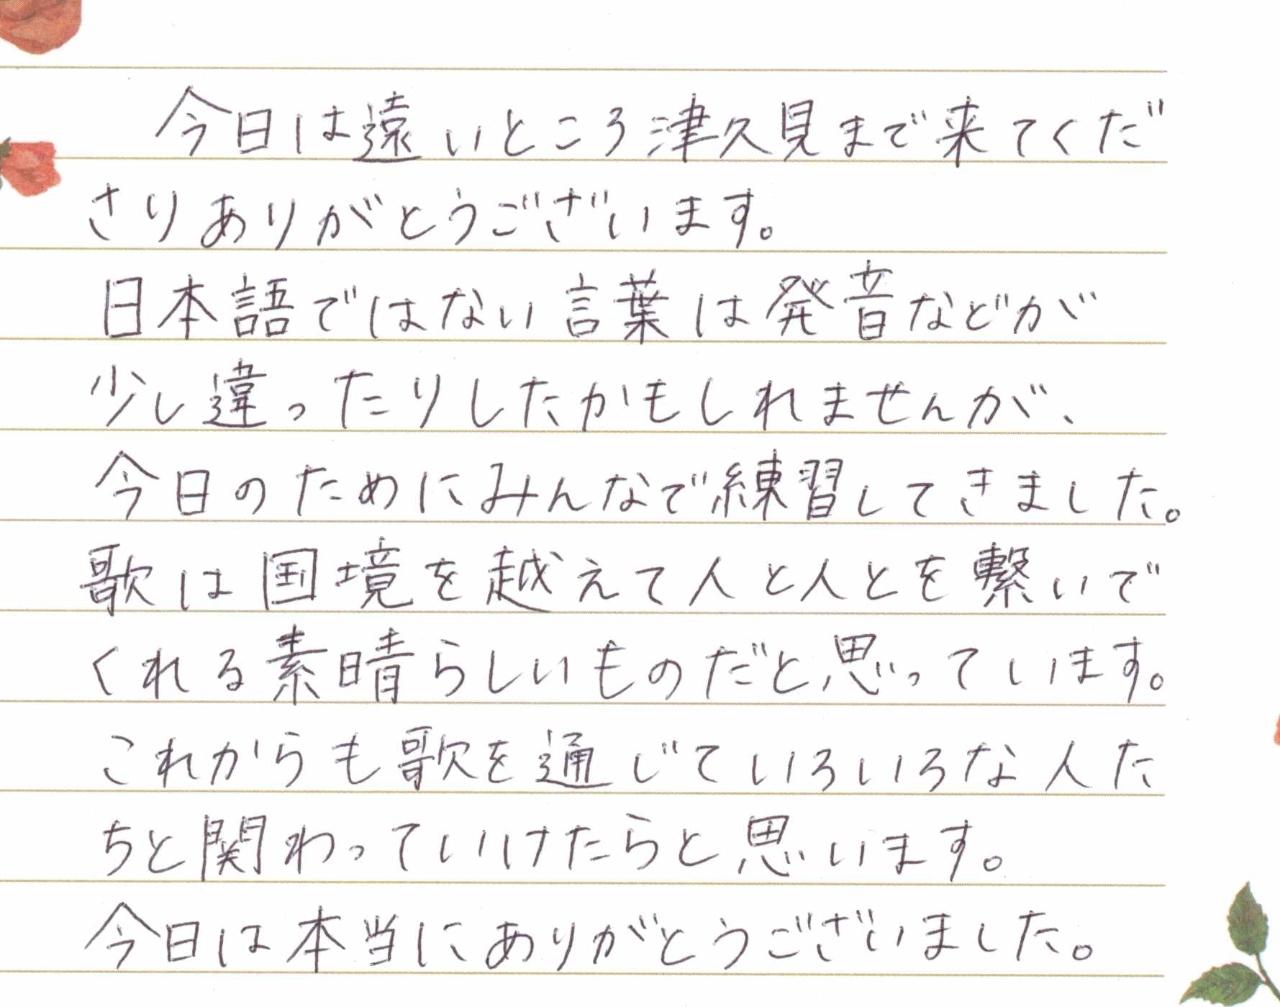 今日は遠いところ津久見まで来てくだ
さりありがとうございます。
日本語ではない言葉は発音などが
少し違ったりしたかもしれませんが、
今日のためにみんなで練習してきました。
歌は国境を越えて人と人とを繋いで
くれる素晴らしいものだと思っています。
これからも歌を通じていろいろな人た
ちと関わっていけたらと思います。
今日は本当にありがとうございました。